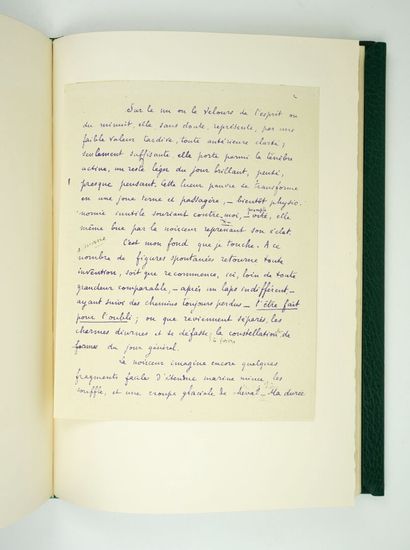 2
Sur le nu ou le velours de l'esprit ou
du minuit, elle sans doute, représente, par une
faible valeur tardive, toute antérieure clarté ;
seulement suffisante, elle porte parmi la ténèbre
active, un reste léger du jour brillant, pensé,
presque pensant. Cette lueur pauvre se transforme
en une joue terne et passagère, — bientôt physio-
nomie inutile souriant contre moi, — elle
même bue par la noirceur reprenant son éclat.
C'est mon fond que je touche. A ce
nombre de figures spontanées retourne toute
invention, soit que recommence, ici, loin de toute
grandeur comparable, — après un laps indifférent —
ayant suivi des chemins toujours perdus — l'être fait
pour l'oubli ; ou que reviennent séparés, les
charmes diurnes et se défasse, la constellation de
formes du jour général.
La noirceur imagine encore quelques
fragments faciles d'étendue marine mieux, les
souffle, et une croupe glaciale de cheval — Ma durée